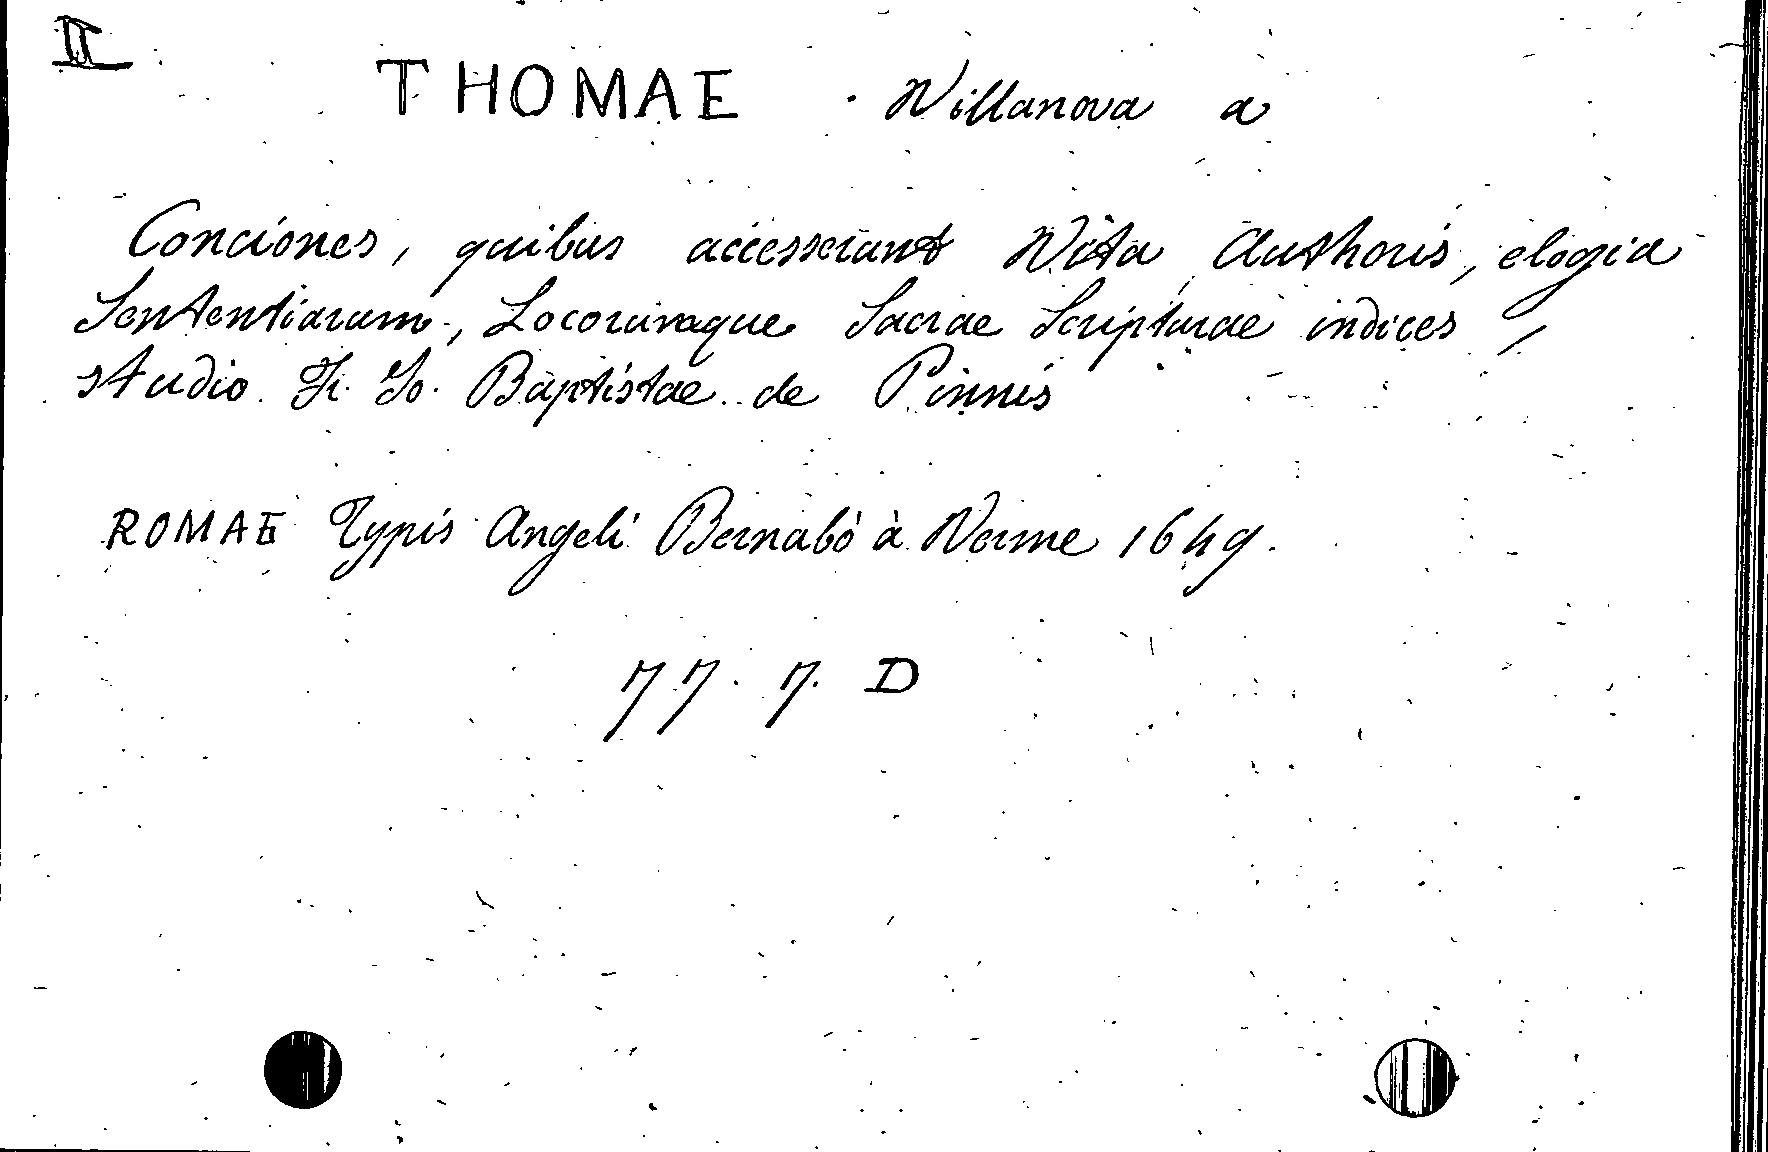 II
THOMAE . Villanova a
Conciones, quibus accesserunt Vita Authoris, elogia
Sententiarum, Locorumque Sacrae Scripturae indices,
studio Fr. Jo. Baptistae de Pinnis
ROMAE Typis Angeli Bernabò à Verme 1649.
77. 7. D